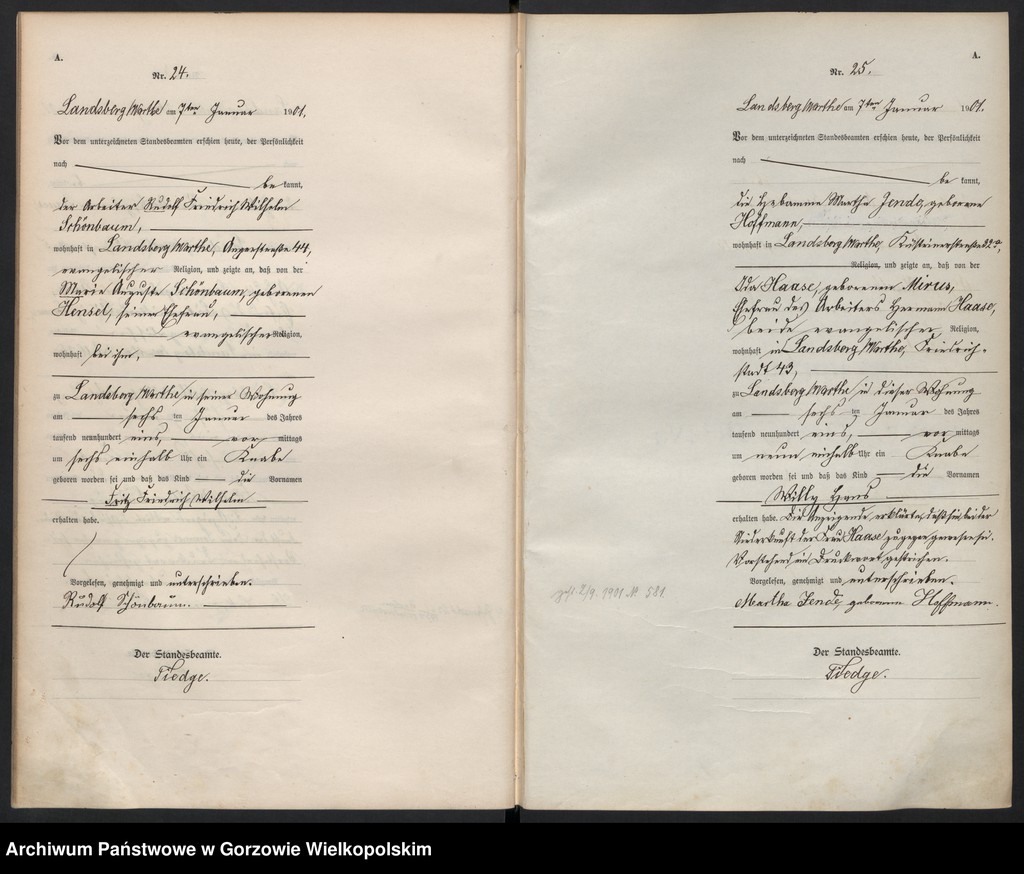 A.
Nr. 24.
Landsberg Warthe am 7ten Januar 1901.
Vor dem unterzeichneten Standesbeamten erschien heute, der Persönlichkeit
nach
be kannt,
der Arbeiter Rudolf Friedrich Wilhelm
Schönbaum,
wohnhaft in Landsberg Warthe, Angerstraße 44,
evangelischer Religion, und zeigte an, daß von der
Marie Auguste Schönbaum, geborenen
Hensel, seiner Ehefrau,
evangelischer Religion,
wohnhaft bei ihm,
zu Landsberg Warthe in seiner Wohnung
am sechs ten Januar des Jahres
tausend neunhundert eins, vor mittags
um sechs einhalb Uhr ein Knabe
geboren worden sei und daß das Kind die Vornamen
Fritz Friedrich Wilhelm
erhalten habe.
Vorgelesen, genehmigt und unterschrieben.
Rudolf Schönbaum.
Der Standesbeamte.
Tiedge.
A.
Nr. 25.
Landsberg Warthe am 7ten Januar 1901.
Vor dem unterzeichneten Standesbeamten erschien heute, der Persönlichkeit
nach
be kannt,
die Hebamme Martha Jende, geborene
Hoffmann,
wohnhaft in Landsberg Warthe, Küstrinerstraße
Religion, und zeigte an, daß von der
Ida Haase, geborenen Mirus,
Ehefrau des Arbeiters Hermann Haase,
beide evangelischer Religion,
wohnhaft in Landsberg Warthe, Friedrich-
stadt 43,
zu Landsberg Warthe in dieser Wohnung
am sechs ten Januar des Jahres
tausend neunhundert eins, vor mittags
um neun einhalb Uhr ein Knabe
geboren worden sei und daß das Kind die Vornamen
Willy Hans
erhalten habe. Die Anzeigende erklärte, daß sie bei der
Niederkunft der Frau Haase zugegen gewesen sei.
Vorstehend ein Druckwort gestrichen.
Vorgelesen, genehmigt und unterschrieben.
Martha Jende, geborene Hoffmann.
Der Standesbeamte.
Tiedge.
2/9. 1901 № 581.
Archiwum Państwowe w Gorzowie Wielkopolskim